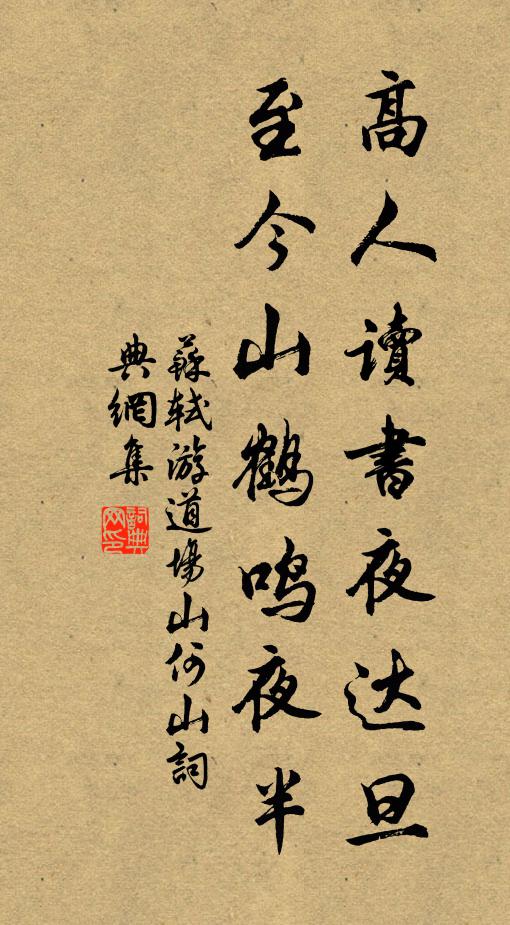 高人讀書夜达旦
至今山鶴鸣夜半
蘇轼游道場山何山詞
典網集
詞典网印